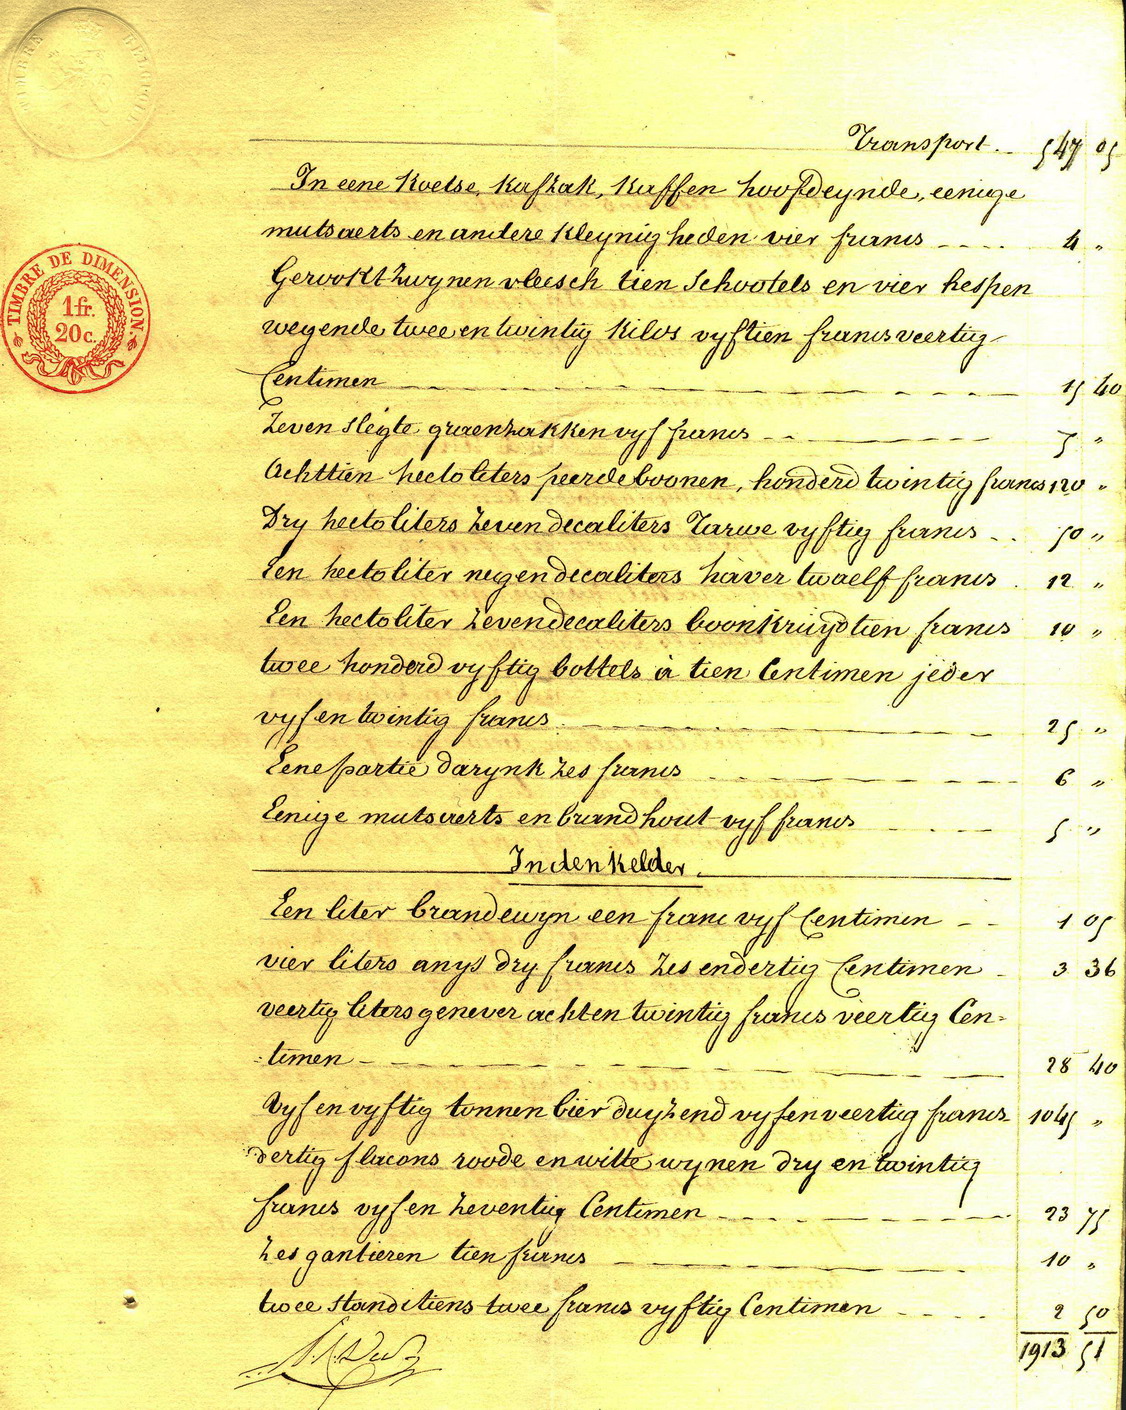 TIMBRE DE DIMENSION.
1 fr.
20 c.
Transport. 547 05
In eene Koetse, Kafzak, Kaffen hoofdeynde, eenige
mutsaerts en andere Kleynigheden vier francs 4 "
Gerookt Zwynen vleesch tien Schootels en vier hespen
wegende twee en twintig Kilos vyftien francs veertig
Centimen 15 40
Zeven slegte graenzakken vyf francs 5 "
Achttien hectoliters peerdeboonen, honderd twintig francs 120 "
Dry hectoliters Zeven decaliters Tarwe vyftig francs 50 "
Een hectoliter negen decaliters haver twaelf francs 12 "
Een hectoliter Zeven decaliters boonkruyd tien francs 10 "
twee honderd vyftig bottels à tien Centimen jeder
vyf en twintig francs 25 "
Eene partie darynk Zes francs 6 "
Eenige mutsaerts en brandhout vyf francs 5 "
In den Kelder.
Een liter brandewyn een franc vyf Centimen 1 05
vier liters anys dry francs Zes en dertig Centimen 3 36
veertig liters genever acht en twintig francs veertig Cen-
timen 28 40
Vyf en vyftig tonnen bier duyzend vyf en veertig francs 1045 "
dertig flacons roode en witte wynen dry en twintig
francs vyf en Zeventig Centimen 23 75
Zes gantieren tien francs 10 "
twee Standetiens twee francs vyftig Centimen 2 50
1913 51